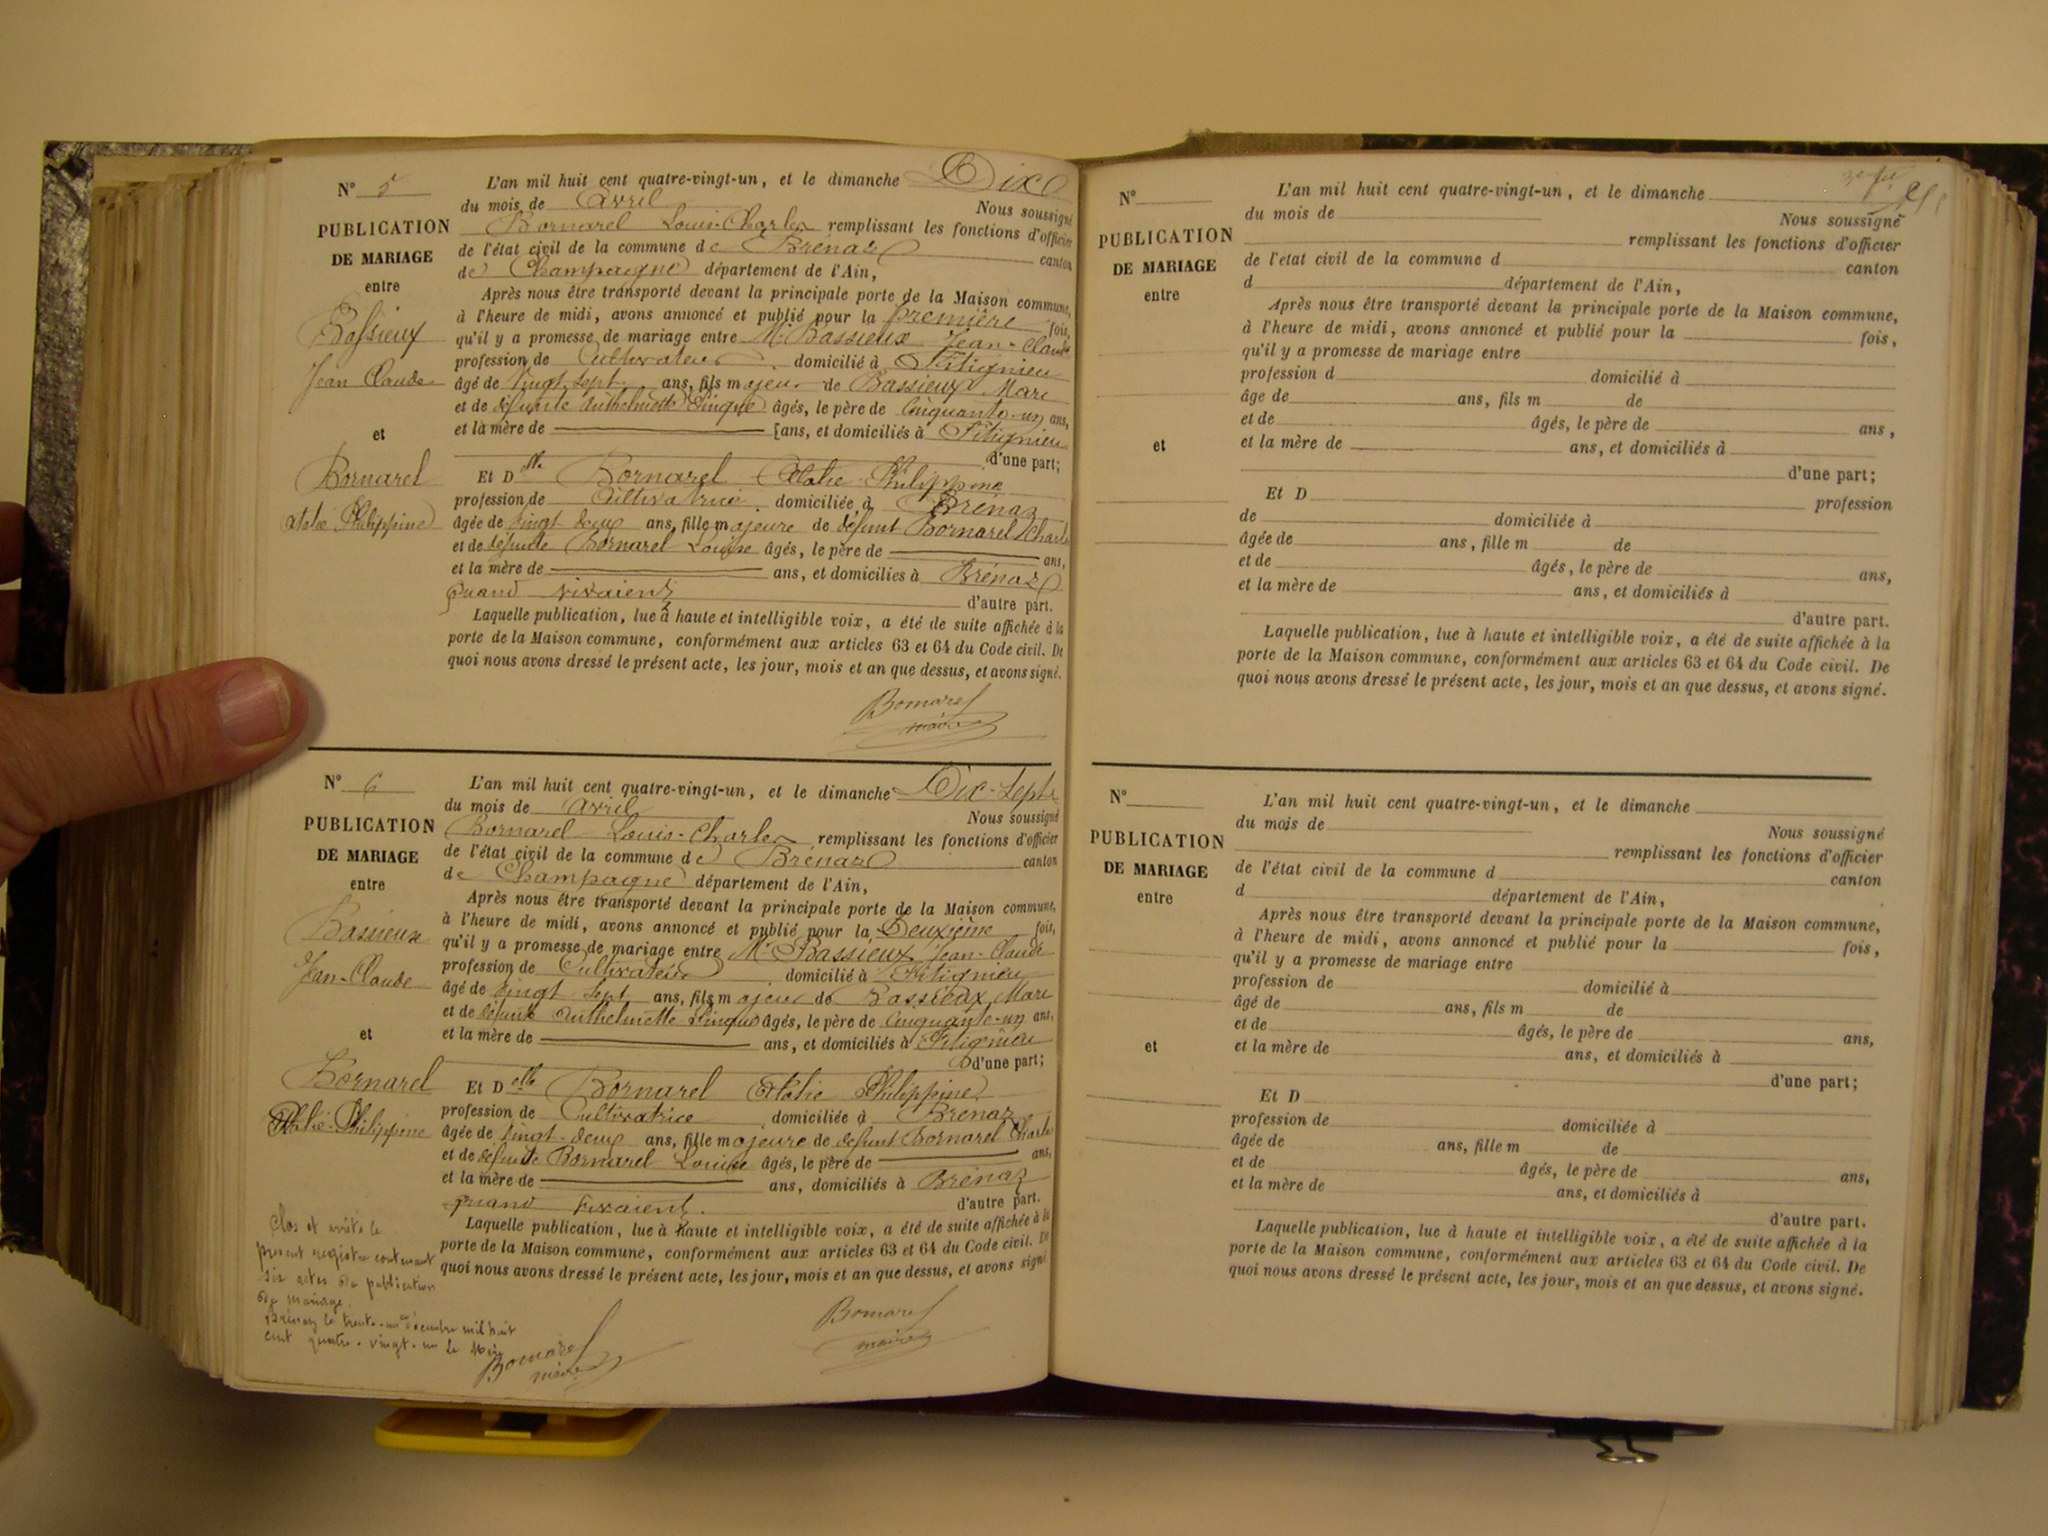 N° 5
PUBLICATION
DE MARIAGE
entre
Bassieux
Jean Claude
et
Bornarel
Philippine
L'an mil huit cent quatre-vingt-un, et le dimanche Dix
du mois de Avril Nous soussigné
Bornarel Louis-Charles remplissant les fonctions d'officier
de l'état civil de la commune de Brénaz canton
de Champagne département de l'Ain,
Après nous être transporté devant la principale porte de la Maison commune,
à l'heure de midi, avons annoncé et publié pour la première fois,
qu'il y a promesse de mariage entre Mr Bassieux Jean-Claude
profession de Cultivateur domicilié à Fitignieu
âgé de vingt sept ans, fils majeur de Bassieux Marc
et de défunte Anthelmette âgés, le père de Cinquante-un ans,
et la mère de [ans, et domiciliés à Fitignieu
d'une part;
Et Dlle Bornarel Philippine
profession de Cultivatrice domiciliée à Brénaz
âgée de vingt deux ans, fille majeure de défunt Bornarel Charles
et de défunte Bornarel Louise âgés, le père de ans,
et la mère de ans, et domiciliés à Brénaz
quand vivaient d'autre part.
Laquelle publication, lue à haute et intelligible voix, a été de suite affichée à la
porte de la Maison commune, conformément aux articles 63 et 64 du Code civil. De
quoi nous avons dressé le présent acte, les jour, mois et an que dessus, et avons signé.
Bornarel
maire
N° 6
PUBLICATION
DE MARIAGE
entre
Bassieux
Jean-Claude
et
Bornarel
Philippine
L'an mil huit cent quatre-vingt-un, et le dimanche Dix-Sept
du mois de Avril Nous soussigné
Bornarel Louis-Charles remplissant les fonctions d'officier
de l'état civil de la commune de Brénaz canton
de Champagne département de l'Ain,
Après nous être transporté devant la principale porte de la Maison commune,
à l'heure de midi, avons annoncé et publié pour la Deuxième fois,
qu'il y a promesse de mariage entre Mr Bassieux Jean-Claude
profession de Cultivateur domicilié à Fitignieu
âgé de vingt-sept ans, fils majeur de Bassieux Marc
et de défunte Anthelmette âgés, le père de Cinquante-un ans,
et la mère de ans, et domiciliés à Fitignieu
d'une part;
Et Delle Bornarel Philippine
profession de Cultivatrice domiciliée à Brénaz
âgée de vingt-deux ans, fille majeure de défunt Bornarel Charles
et de défunte Bornarel Louise âgés, le père de ans,
et la mère de ans, domiciliés à Brénaz
quand vivaient. d'autre part.
Laquelle publication, lue à haute et intelligible voix, a été de suite affichée à la
porte de la Maison commune, conformément aux articles 63 et 64 du Code civil. De
quoi nous avons dressé le présent acte, les jour, mois et an que dessus, et avons signé
Bornarel
maire
Clos et arrêté le
présent registre contenant
six actes de publication
de mariage.
Brénaz le trente-un décembre mil huit
cent quatre-vingt-un Le Maire
Bornarel
maire
N°
PUBLICATION
DE MARIAGE
entre
et
L'an mil huit cent quatre-vingt-un, et le dimanche
du mois de Nous soussigné
remplissant les fonctions d'officier
de l'état civil de la commune d canton
d département de l'Ain,
Après nous être transporté devant la principale porte de la Maison commune,
à l'heure de midi, avons annoncé et publié pour la fois,
qu'il y a promesse de mariage entre
profession d domicilié à
âge de ans, fils m de
et de âgés, le père de ans,
et la mère de ans, et domiciliés à
d'une part;
Et D profession
de domiciliée à
âgée de ans, fille m de
et de âgés, le père de ans,
et la mère de ans, et domiciliés à
d'autre part.
Laquelle publication, lue à haute et intelligible voix, a été de suite affichée à la
porte de la Maison commune, conformément aux articles 63 et 64 du Code civil. De
quoi nous avons dressé le présent acte, les jour, mois et an que dessus, et avons signé.
N°
PUBLICATION
DE MARIAGE
entre
et
L'an mil huit cent quatre-vingt-un, et le dimanche
du mois de Nous soussigné
remplissant les fonctions d'officier
de l'état civil de la commune d canton
d département de l'Ain,
Après nous être transporté devant la principale porte de la Maison commune,
à l'heure de midi, avons annoncé et publié pour la fois,
qu'il y a promesse de mariage entre
profession de domicilié à
âgé de ans, fils m de
et de âgés, le père de ans,
et la mère de ans, et domiciliés à
d'une part;
Et D
profession de domiciliée à
âgée de ans, fille m de
et de âgés, le père de ans,
et la mère de ans, et domiciliés à
d'autre part.
Laquelle publication, lue à haute et intelligible voix, a été de suite affichée à la
porte de la Maison commune, conformément aux articles 63 et 64 du Code civil. De
quoi nous avons dressé le présent acte, les jour, mois et an que dessus, et avons signé.